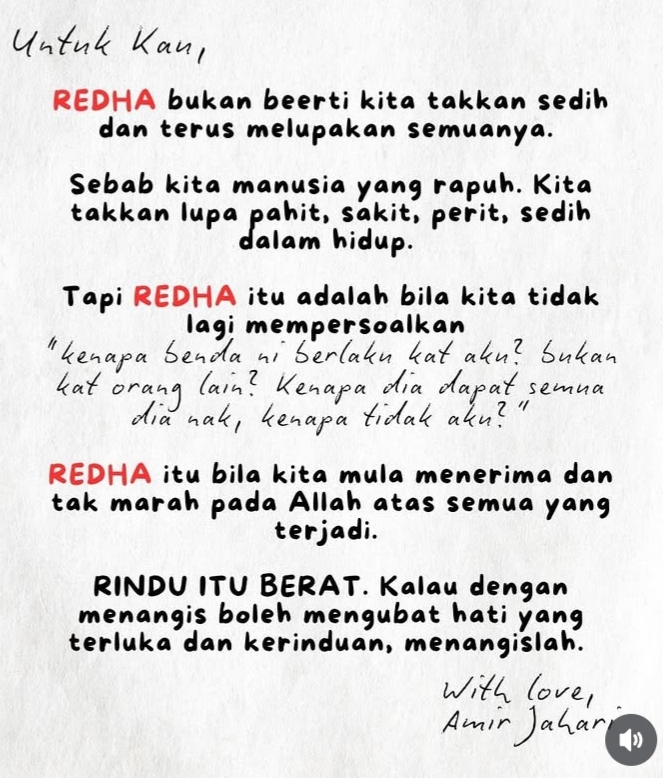 Untuk Kau,
REDHA bukan beerti kita takkan sedih
dan terus melupakan semuanya.
Sebab kita manusia yang rapuh. Kita
takkan lupa pahit, sakit, perit, sedih
dalam hidup.
Tapi REDHA itu adalah bila kita tidak
lagi mempersoalkan
"kenapa benda ni berlaku kat aku? bukan
kat orang lain? Kenapa dia dapat semua
dia nak, kenapa tidak aku?"
REDHA itu bila kita mula menerima dan
tak marah pada Allah atas semua yang
terjadi.
RINDU ITU BERAT. Kalau dengan
menangis boleh mengubat hati yang
terluka dan kerinduan, menangislah.
With love,
Amir Jahari